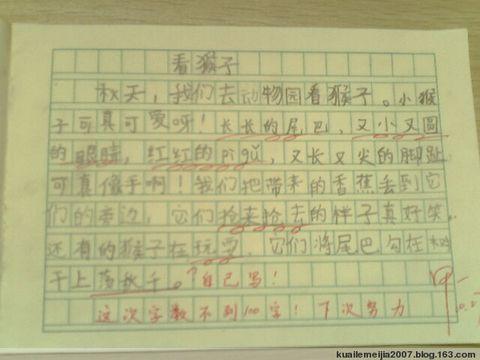 看猴子
秋天，我们去动物园看猴子。小猴
子可真可爱呀！长长的尾巴，又小又圆
的眼睛，红红的pìgǔ，又长又尖的脚趾
可真像手啊！我们把带来的香蕉丢到它
们的旁边，它们抢来抢去的样子真好笑。
还有的猴子在玩耍，它们将尾巴勾在树
干上荡秋千。？自己写！
这次字数不到100字！下次努力
kuailemeijia2007.blog.163.com